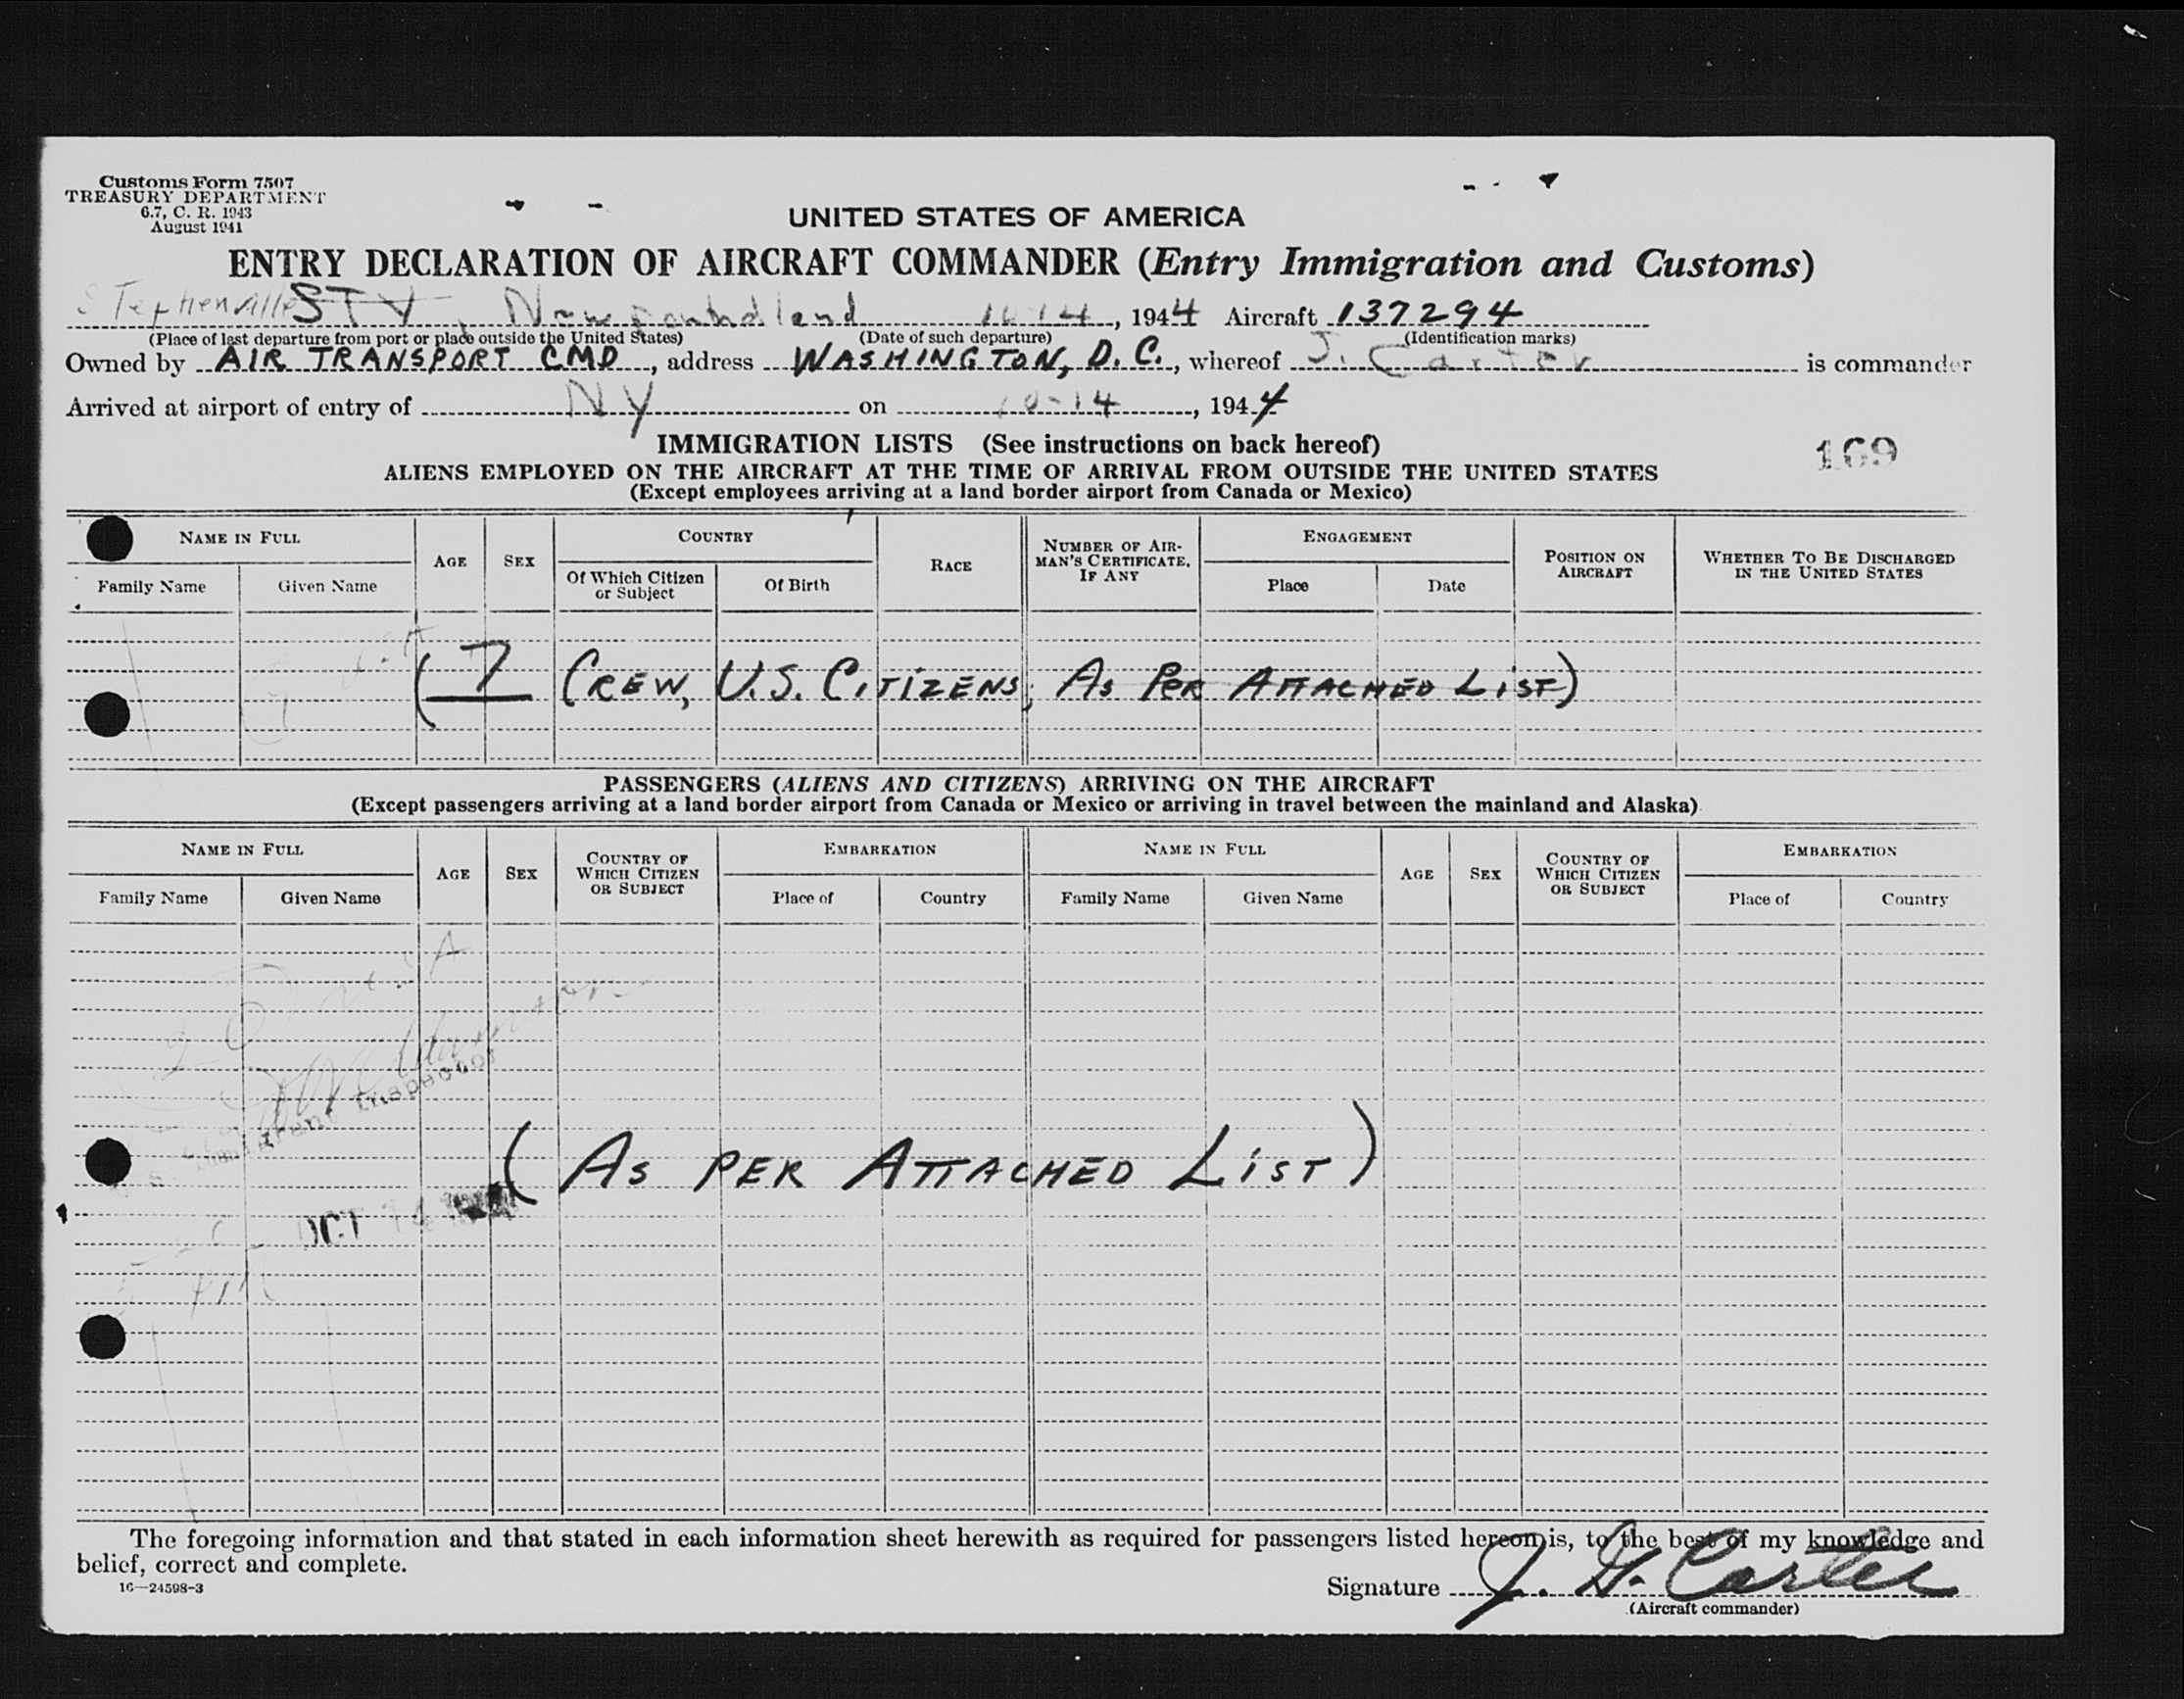 Customs Form 7507
TREASURY DEPARTMENT
6.7, C. R. 1943
August 1941
UNITED STATES OF AMERICA
ENTRY DECLARATION OF AIRCRAFT COMMANDER (Entry Immigration and Customs)
Stephenville STV, Newfoundland 10 14, 1944 Aircraft 137294
(Place of last departure from port or place outside the United States) (Date of such departure) (Identification marks)
Owned by AIR TRANSPORT CMD, address WASHINGTON, D. C., whereof J. Carter is commander
Arrived at airport of entry of NY on 10-14, 1944
IMMIGRATION LISTS (See instructions on back hereof)
169
ALIENS EMPLOYED ON THE AIRCRAFT AT THE TIME OF ARRIVAL FROM OUTSIDE THE UNITED STATES
(Except employees arriving at a land border airport from Canada or Mexico)
NAME IN FULL AGE SEX COUNTRY RACE NUMBER OF AIRMAN'S CERTIFICATE, IF ANY ENGAGEMENT POSITION ON AIRCRAFT WHETHER TO BE DISCHARGED IN THE UNITED STATES
Family Name Given Name Of Which Citizen or Subject Of Birth Place Date
(7 CREW, U.S. CITIZENS, AS PER ATTACHED LIST)
PASSENGERS (ALIENS AND CITIZENS) ARRIVING ON THE AIRCRAFT
(Except passengers arriving at a land border airport from Canada or Mexico or arriving in travel between the mainland and Alaska)
NAME IN FULL AGE SEX COUNTRY OF WHICH CITIZEN OR SUBJECT EMBARKATION NAME IN FULL AGE SEX COUNTRY OF WHICH CITIZEN OR SUBJECT EMBARKATION
Family Name Given Name Place of Country Family Name Given Name Place of Country
Immigrant Inspector
(AS PER ATTACHED LIST)
OCT 14
The foregoing information and that stated in each information sheet herewith as required for passengers listed hereon is, to the best of my knowledge and
belief, correct and complete.
16—24598-3
Signature J. H. Carter
(Aircraft commander)